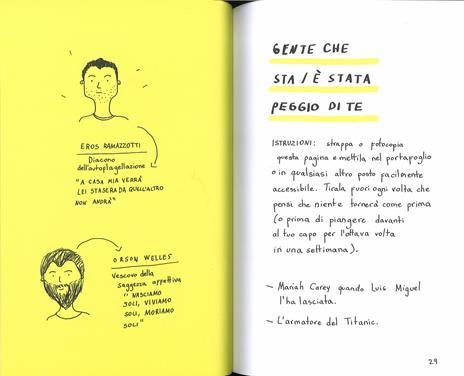 EROS RAMAZZOTTI
Diacono
dell'autoflagellazione
"A CASA MIA VERRÀ
LEI STASERA DA QUELL'ALTRO
NON ANDRÀ"
ORSON WELLES
Vescovo della
saggezza appettiva
"NASCIAMO
SOLI, VIVIAMO
SOLI, MORIAMO
SOLI"
GENTE CHE
STA / È STATA
PEGGIO DI TE
ISTRUZIONI: strappa o fotocopia
questa pagina e mettila nel portafoglio
o in qualsiasi altro posto facilmente
accessibile. Tirala fuori ogni volta che
pensi che niente tornerà come prima
(o prima di piangere davanti
al tuo capo per l'ottava volta
in una settimana).
– Mariah Carey quando Luis Miguel
l'ha lasciata.
– L'armatore del Titanic.
29